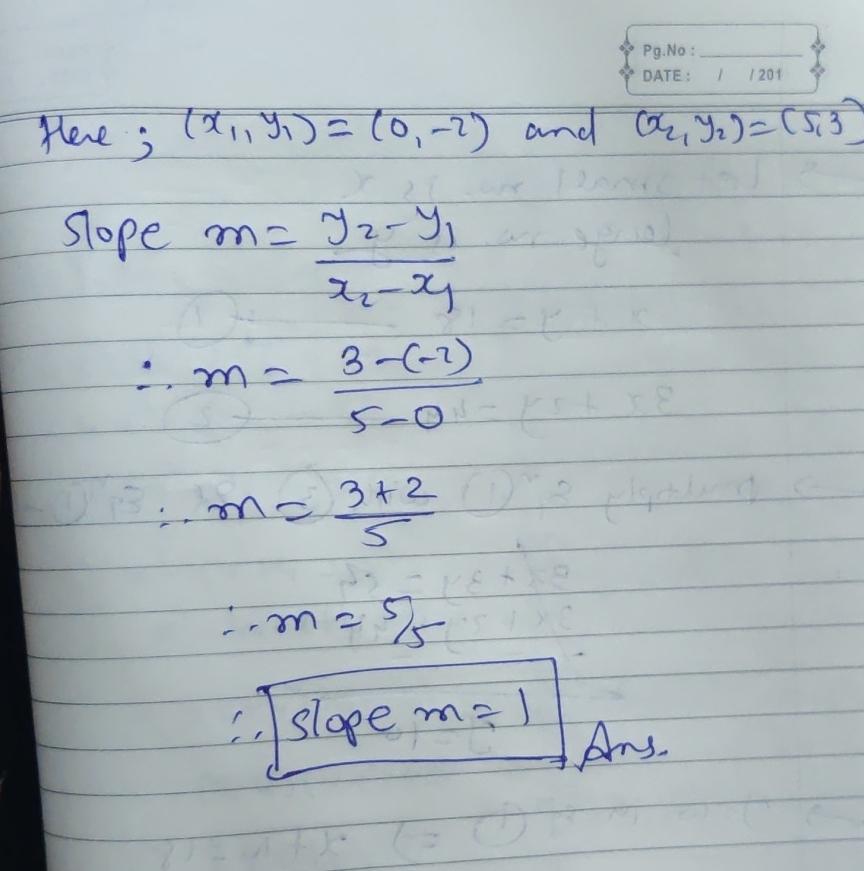 Pg.No :
DATE : / / 201
Here ; (x₁, y₁) = (0, -2) and (x₂, y₂) = (5,3)
Slope m = y₂ - y₁
x₂ - x₁
∴ m = 3 - (-2)
5 - 0
∴ m = 3 + 2
5
∴ m = 5/5
∴ slope m = 1 Ans.